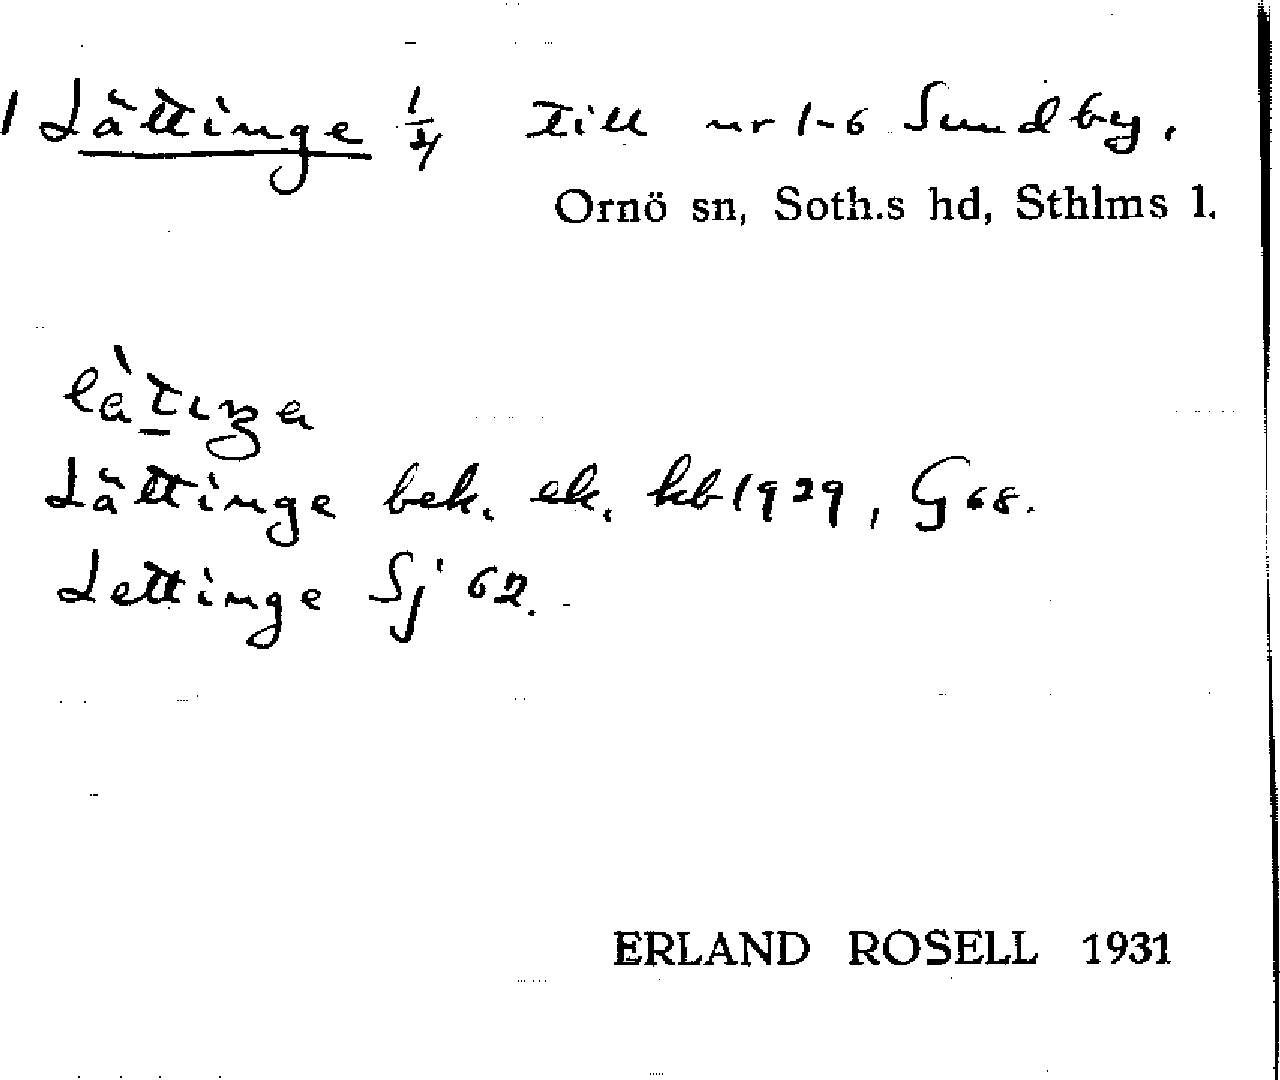 1 Lättinge 1/4 till nr 1-6 Sundby,
Ornö sn, Soth.s hd, Sthlms l.
Lättinge bek. ek. kb 1929, G 68.
Lettinge Sj 62.
ERLAND ROSELL 1931